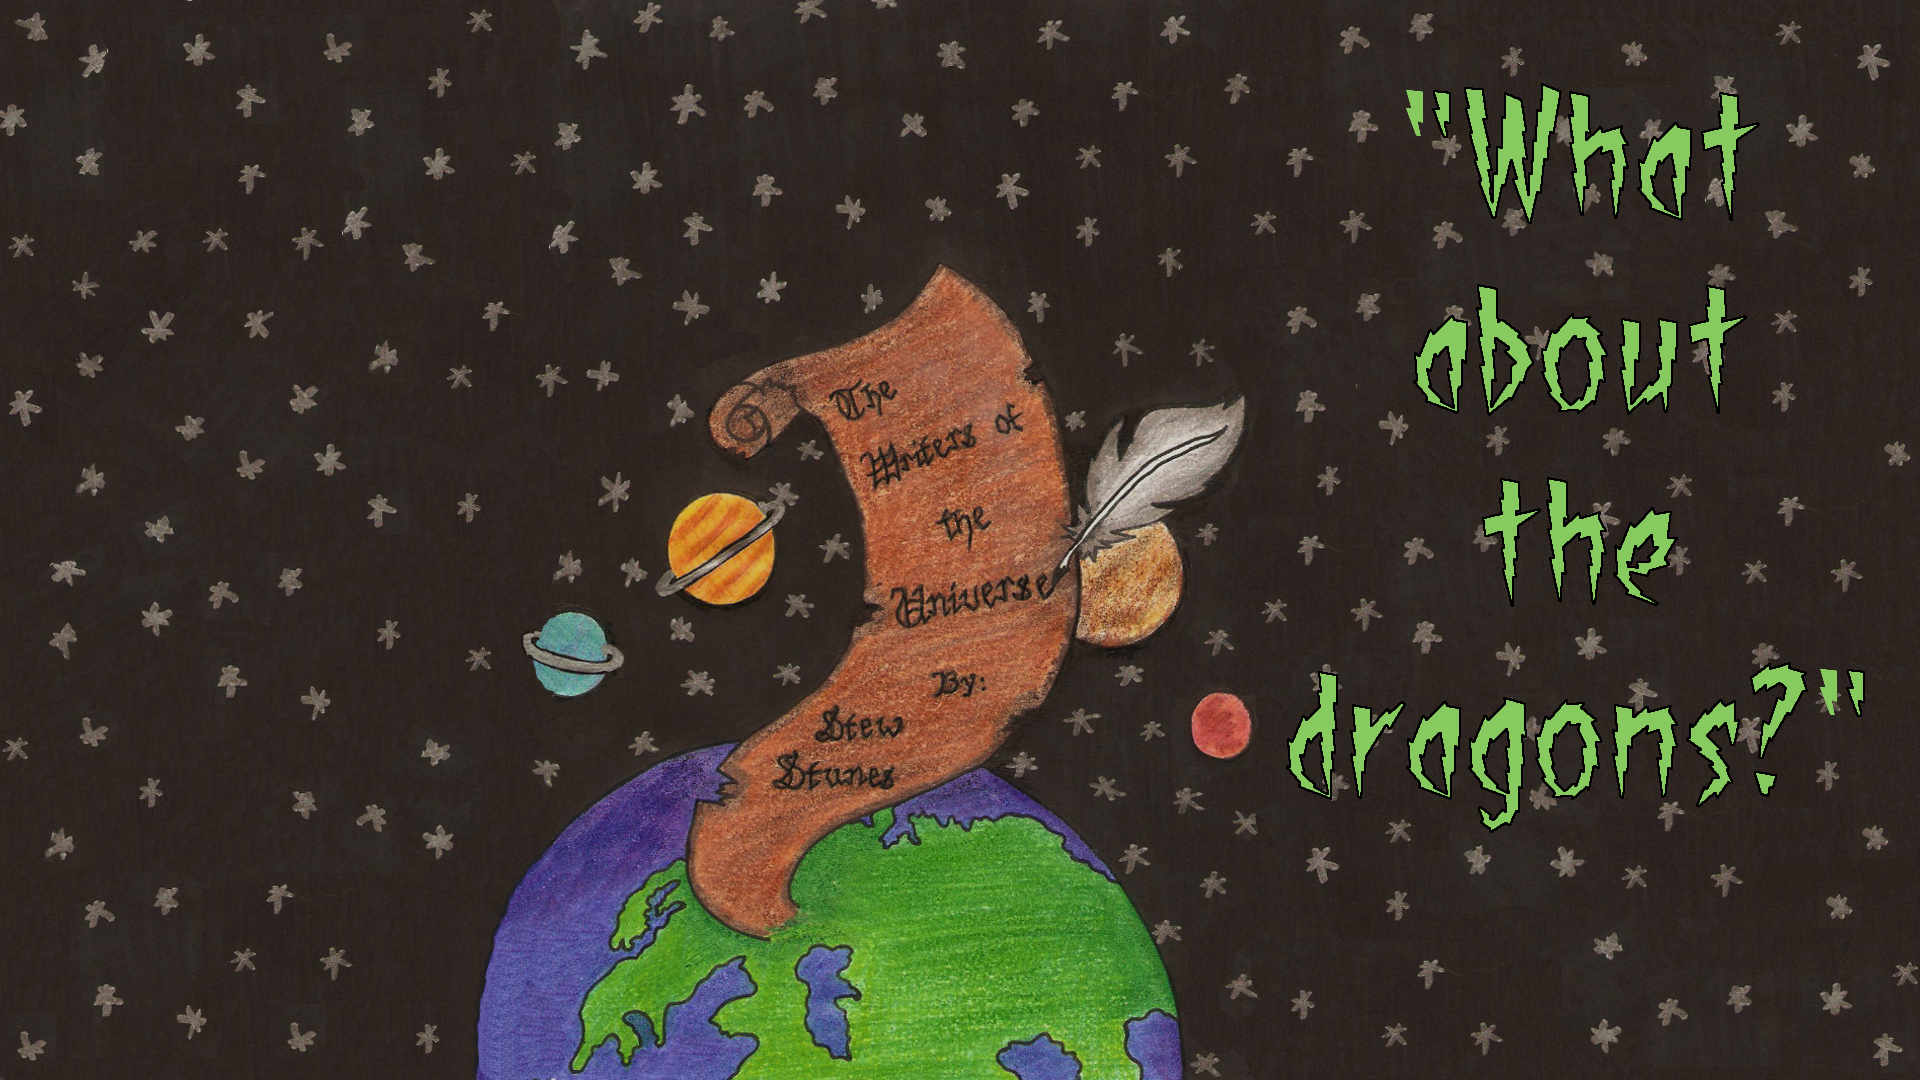 The
Writers of
the
Universe
By:
Stew
Stunes
"What
about
the
dragons?"